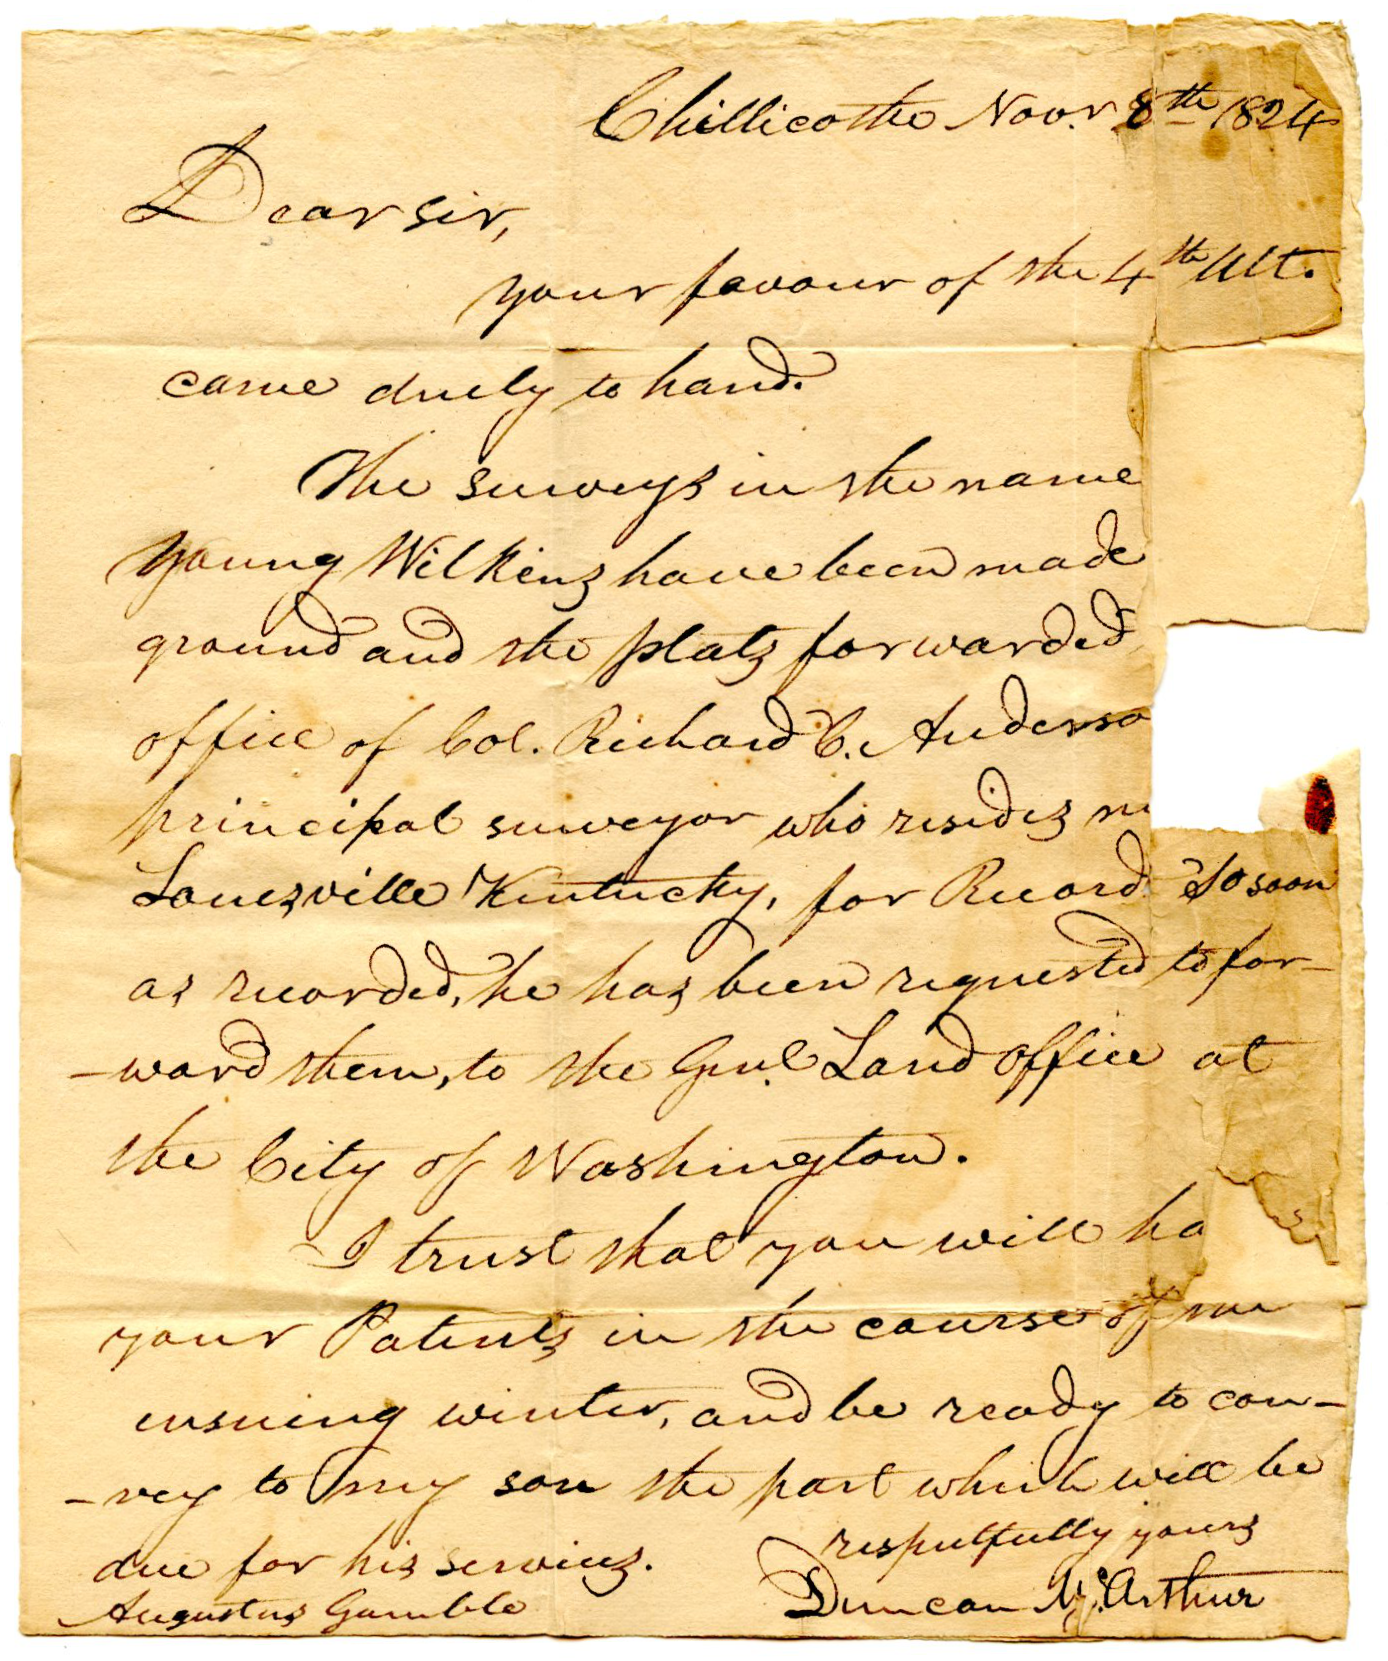 Chillicothe Novr. 8th 1824
Dear sir,
your favour of the 4th Ult.
came duely to hand.
The surveys in the name
Young Wilkins have been made
ground and the plats forwarded
office of Col. Richard C. Anderso
principal surveyor who resides n
Louisville Kentucky, for Record So soon
as recorded, he has been requested to for-
-ward them, to the Genl. Land office at
the City of Washington.
I trust that you will ha
your Patents in the course of
ensuing winter, and be ready to con-
-vey to my son the part which will be
due for his services.
respectfully yours
Augustus Gamble
Duncan McArthur